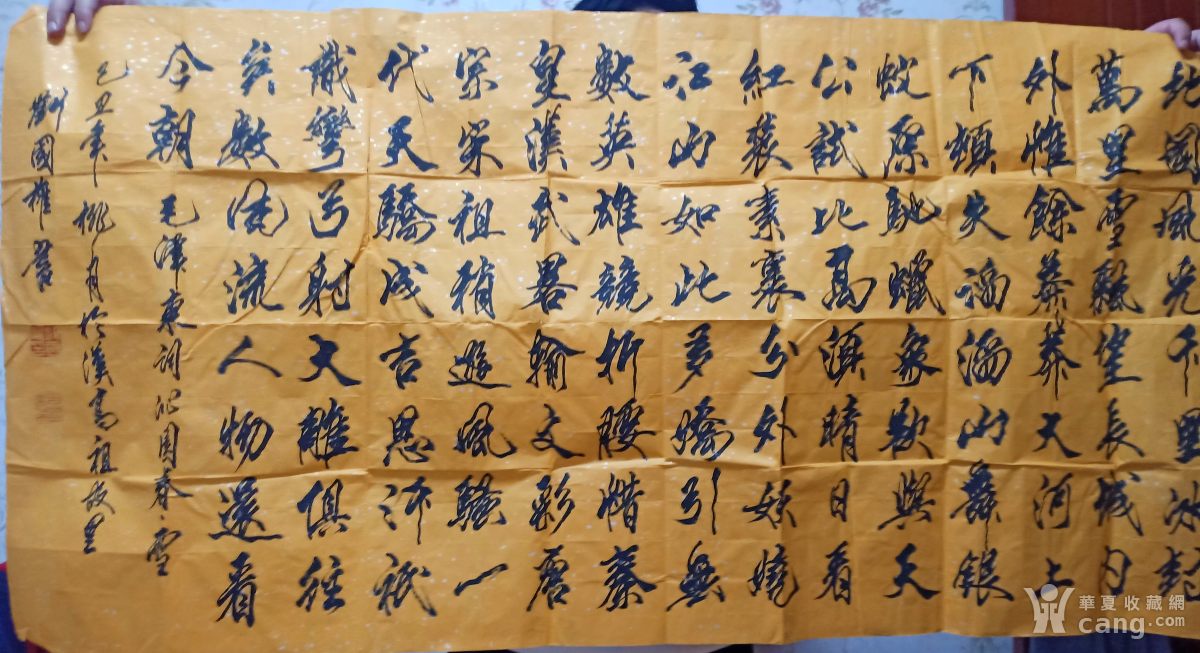 北國風光千里冰封
萬里雪飄望長城內
外惟餘莽莽大河上
下頓失滔滔山舞銀
蛇原馳蠟象欲與天
公試比高須晴日看
紅裝素裹分外妖嬈
江山如此多嬌引無
數英雄競折腰惜秦
皇漢武畧輸文彩唐
宗宋祖稍遜風騷一
代天驕成吉思汗衹
識彎弓射大雕俱往
矣數風流人物還看
今朝 毛澤東詞沁園春雪
己丑年桃月於漢高祖故里
劉國雄書
華夏收藏網
cang.com